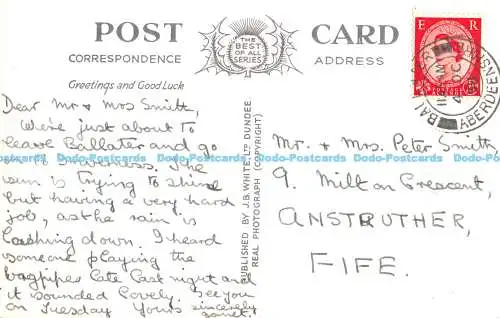 POST CARD
THE
BEST
OF ALL
SERIES
CORRESPONDENCE ADDRESS
Greetings and Good Luck
E R
POSTAGE
ABERDEENSHIRE
Dear Mr & Mrs Smith,
We're just about to
leave Ballater and go
on to Inverness. The
sun is trying to shine
but having a very hard
job, as the rain is
lashing down. I heard
someone playing the
bagpipes late last night and
it sounded lovely. See you
on Tuesday Yours sincerely
Janet.
PUBLISHED BY J.B. WHITE, LTD DUNDEE
REAL PHOTOGRAPH (COPYRIGHT)
Mr. & Mrs. Peter Smith,
9. Milton Crescent,
ANSTRUTHER,
FIFE.
Dodo-Postcards Dodo-Postcards Dodo-Postcards Dodo-Postcards Dodo-Postcards